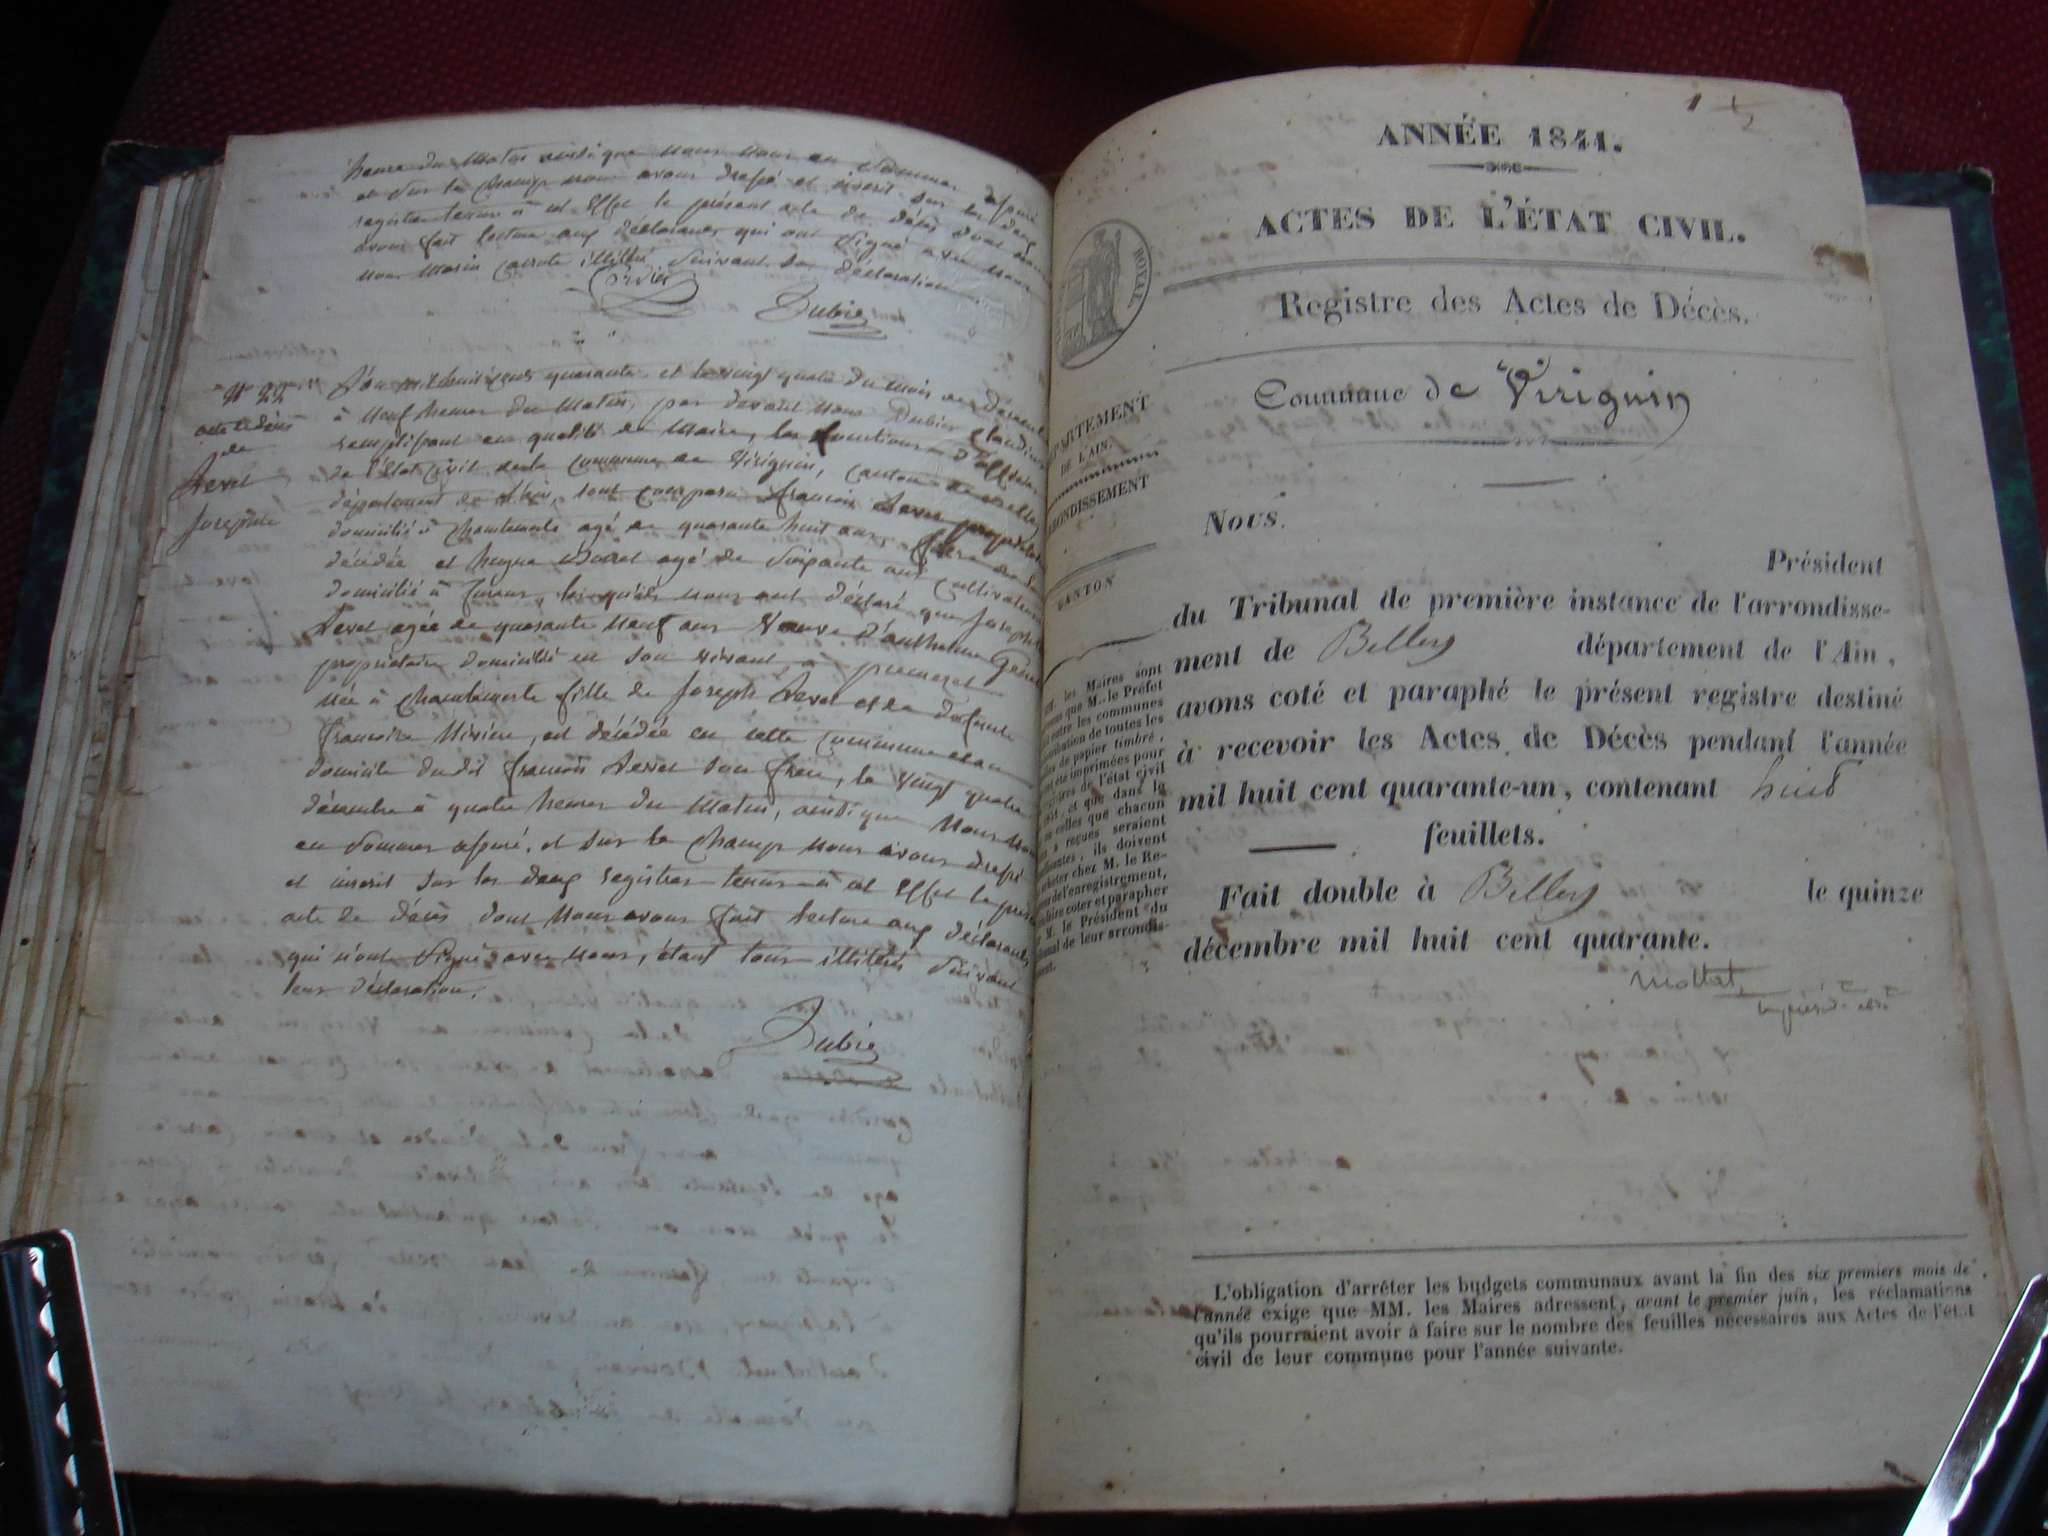 heure du matin ainsi que nous nous en sommes assuré
et sur le champ nous avons dressé et inscrit sur les deux
registres tenus à cet effet le présent acte de décès dont nous
avons fait lecture aux déclarants qui ont signé avec nous
non Marin illitéré suivant sa déclaration.
Dubie
N° 22
acte de décès
de
Revel
Josephte
L'an mil huit cent quarante et le vingt quatre du mois de décembre
à neuf heures du matin, par devant nous Dubier Claudius
remplissant en qualité de Maire, les fonctions d'officier
de l'état civil de la commune de Virignin, canton de Belley
département de l'Ain, sont comparu françois Revel propriétaire
domicilié à Chantemerle agé de quarante huit ans, frère de la
décédée et hugue agé de soixante ans cultivateur
domicilié à, lesquels nous ont déclaré que Josephte
Revel agée de quarante neuf ans Veuve d'anthelme
propriétaire domicilié en son vivant à
née à Chantemerle fille de Joseph Revel et de défunte
francoise, est décédée en cette commune et au
domicile du dit françois Revel son frère, le vingt quatre
décembre à quatre heures du matin, ainsi que nous nous
en sommes assuré, et sur le champ nous avons dressé
et inscrit sur les deux registres tenus à cet effet le présent
acte de décès dont nous avons fait lecture aux déclarants
qui n'ont signé avec nous, étant tous illitérés suivant
leur déclaration.
Dubie
1
ANNÉE 1841.
ACTES DE L'ÉTAT CIVIL.
ROYAL
Registre des Actes de Décès.
Commune de Virignin
PARTEMENT
DE L'AIN.
RONDISSEMENT
CANTON
Nous,
Président
du Tribunal de première instance de l'arrondisse-
ment de Belley département de l'Ain,
avons coté et paraphé le présent registre destiné
à recevoir les Actes de Décès pendant l'année
mil huit cent quarante-un, contenant huit
feuillets.
Fait double à Belley le quinze
décembre mil huit cent quarante.
Mollet
les Maires sont
que M. le Préfet
entre les communes
ribution de toutes les
de papier timbré,
été imprimées pour
de l'état civil
1831, et que dans le
celles que chacun
a reçues seraient
, ils doivent
acheter chez M. le Re-
de l'enregistrement,
faire coter et parapher
M. le Président du
bunal de leur arrondis-
ment.
L'obligation d'arrêter les budgets communaux avant la fin des six premiers mois de
l'année exige que MM. les Maires adressent, avant le premier juin, les réclamations
qu'ils pourraient avoir à faire sur le nombre des feuilles nécessaires aux Actes de l'état
civil de leur commune pour l'année suivante.